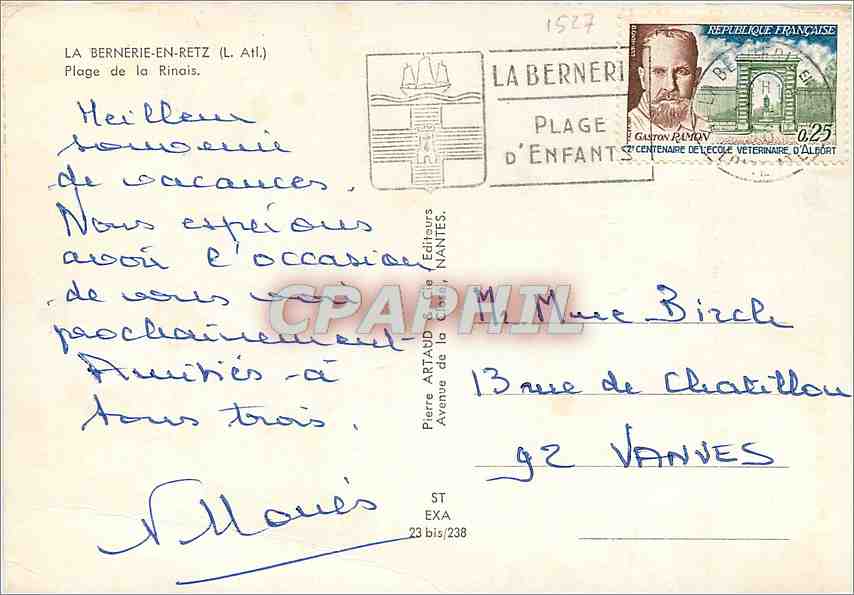 1527
LA BERNERIE-EN-RETZ (L. Atl.)
Plage de la Rinais.
LA BERNERI
PLAGE
D'ENFANTS
RÉPUBLIQUE FRANÇAISE
GASTON RAMON
0,25
2e CENTENAIRE DE L'ÉCOLE VÉTÉRINAIRE D'ALFORT
Meilleur
souvenir
de vacances.
Nous espérons
avoir l'occasion
de vous voir
prochainement
Amitiés à
tous trois.
Pierre ARTAUD & Cie Editeurs
Avenue de la Close, NANTES.
CPAPHIL
Mr Mme Birch
13 rue de Chatillon
92 VANVES
ST
EXA
23 bis/238